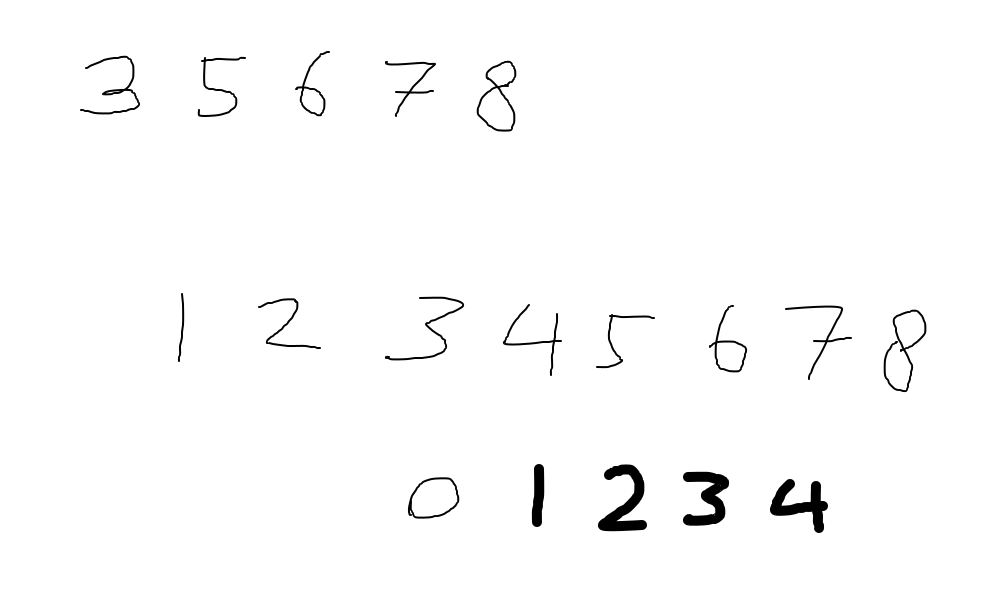 3 5 6 7 8
1 2 3 4 5 6 7 8
0 1 2 3 4